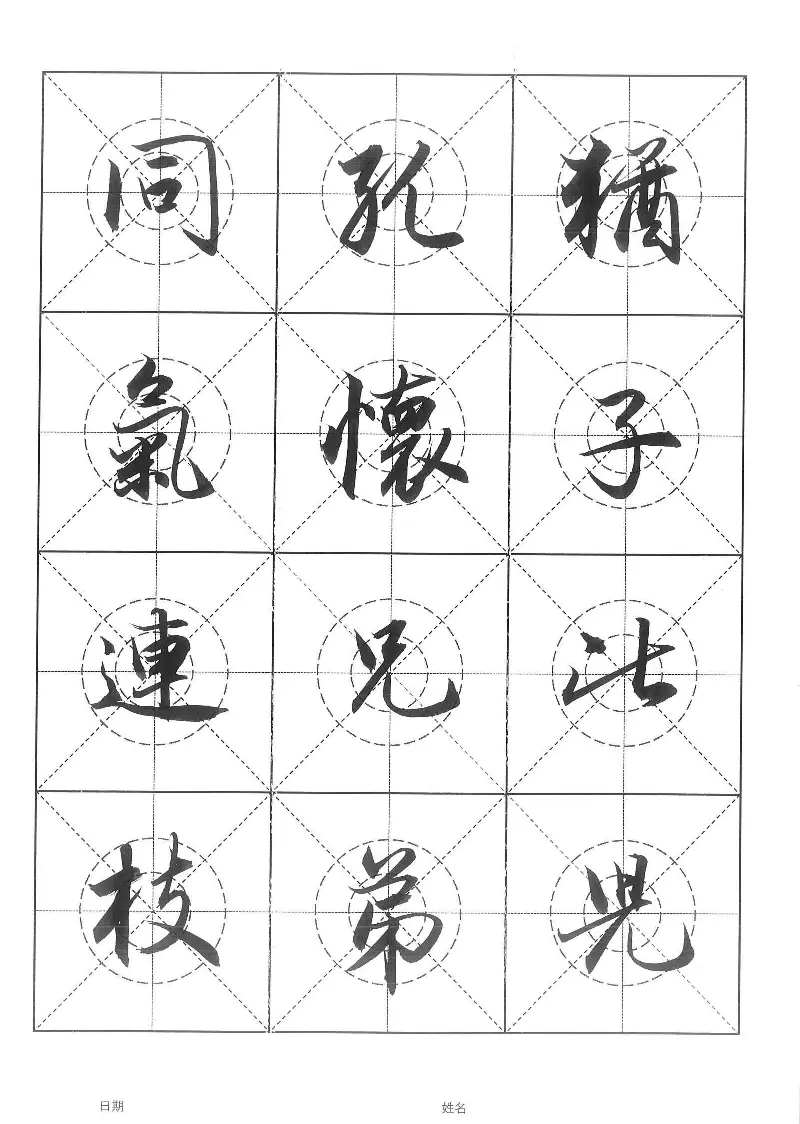 猶子比兒
孔懷兄弟
同氣連枝
日期
姓名